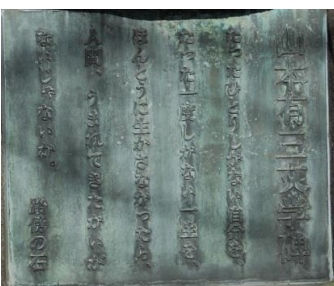 山本有三文学碑
たったひとりしかない自分を、
たった一度しかない一生を、
ほんとうに生かさなかったら、
人間、うまれてきたかいが
ないじゃないか。
路傍の石